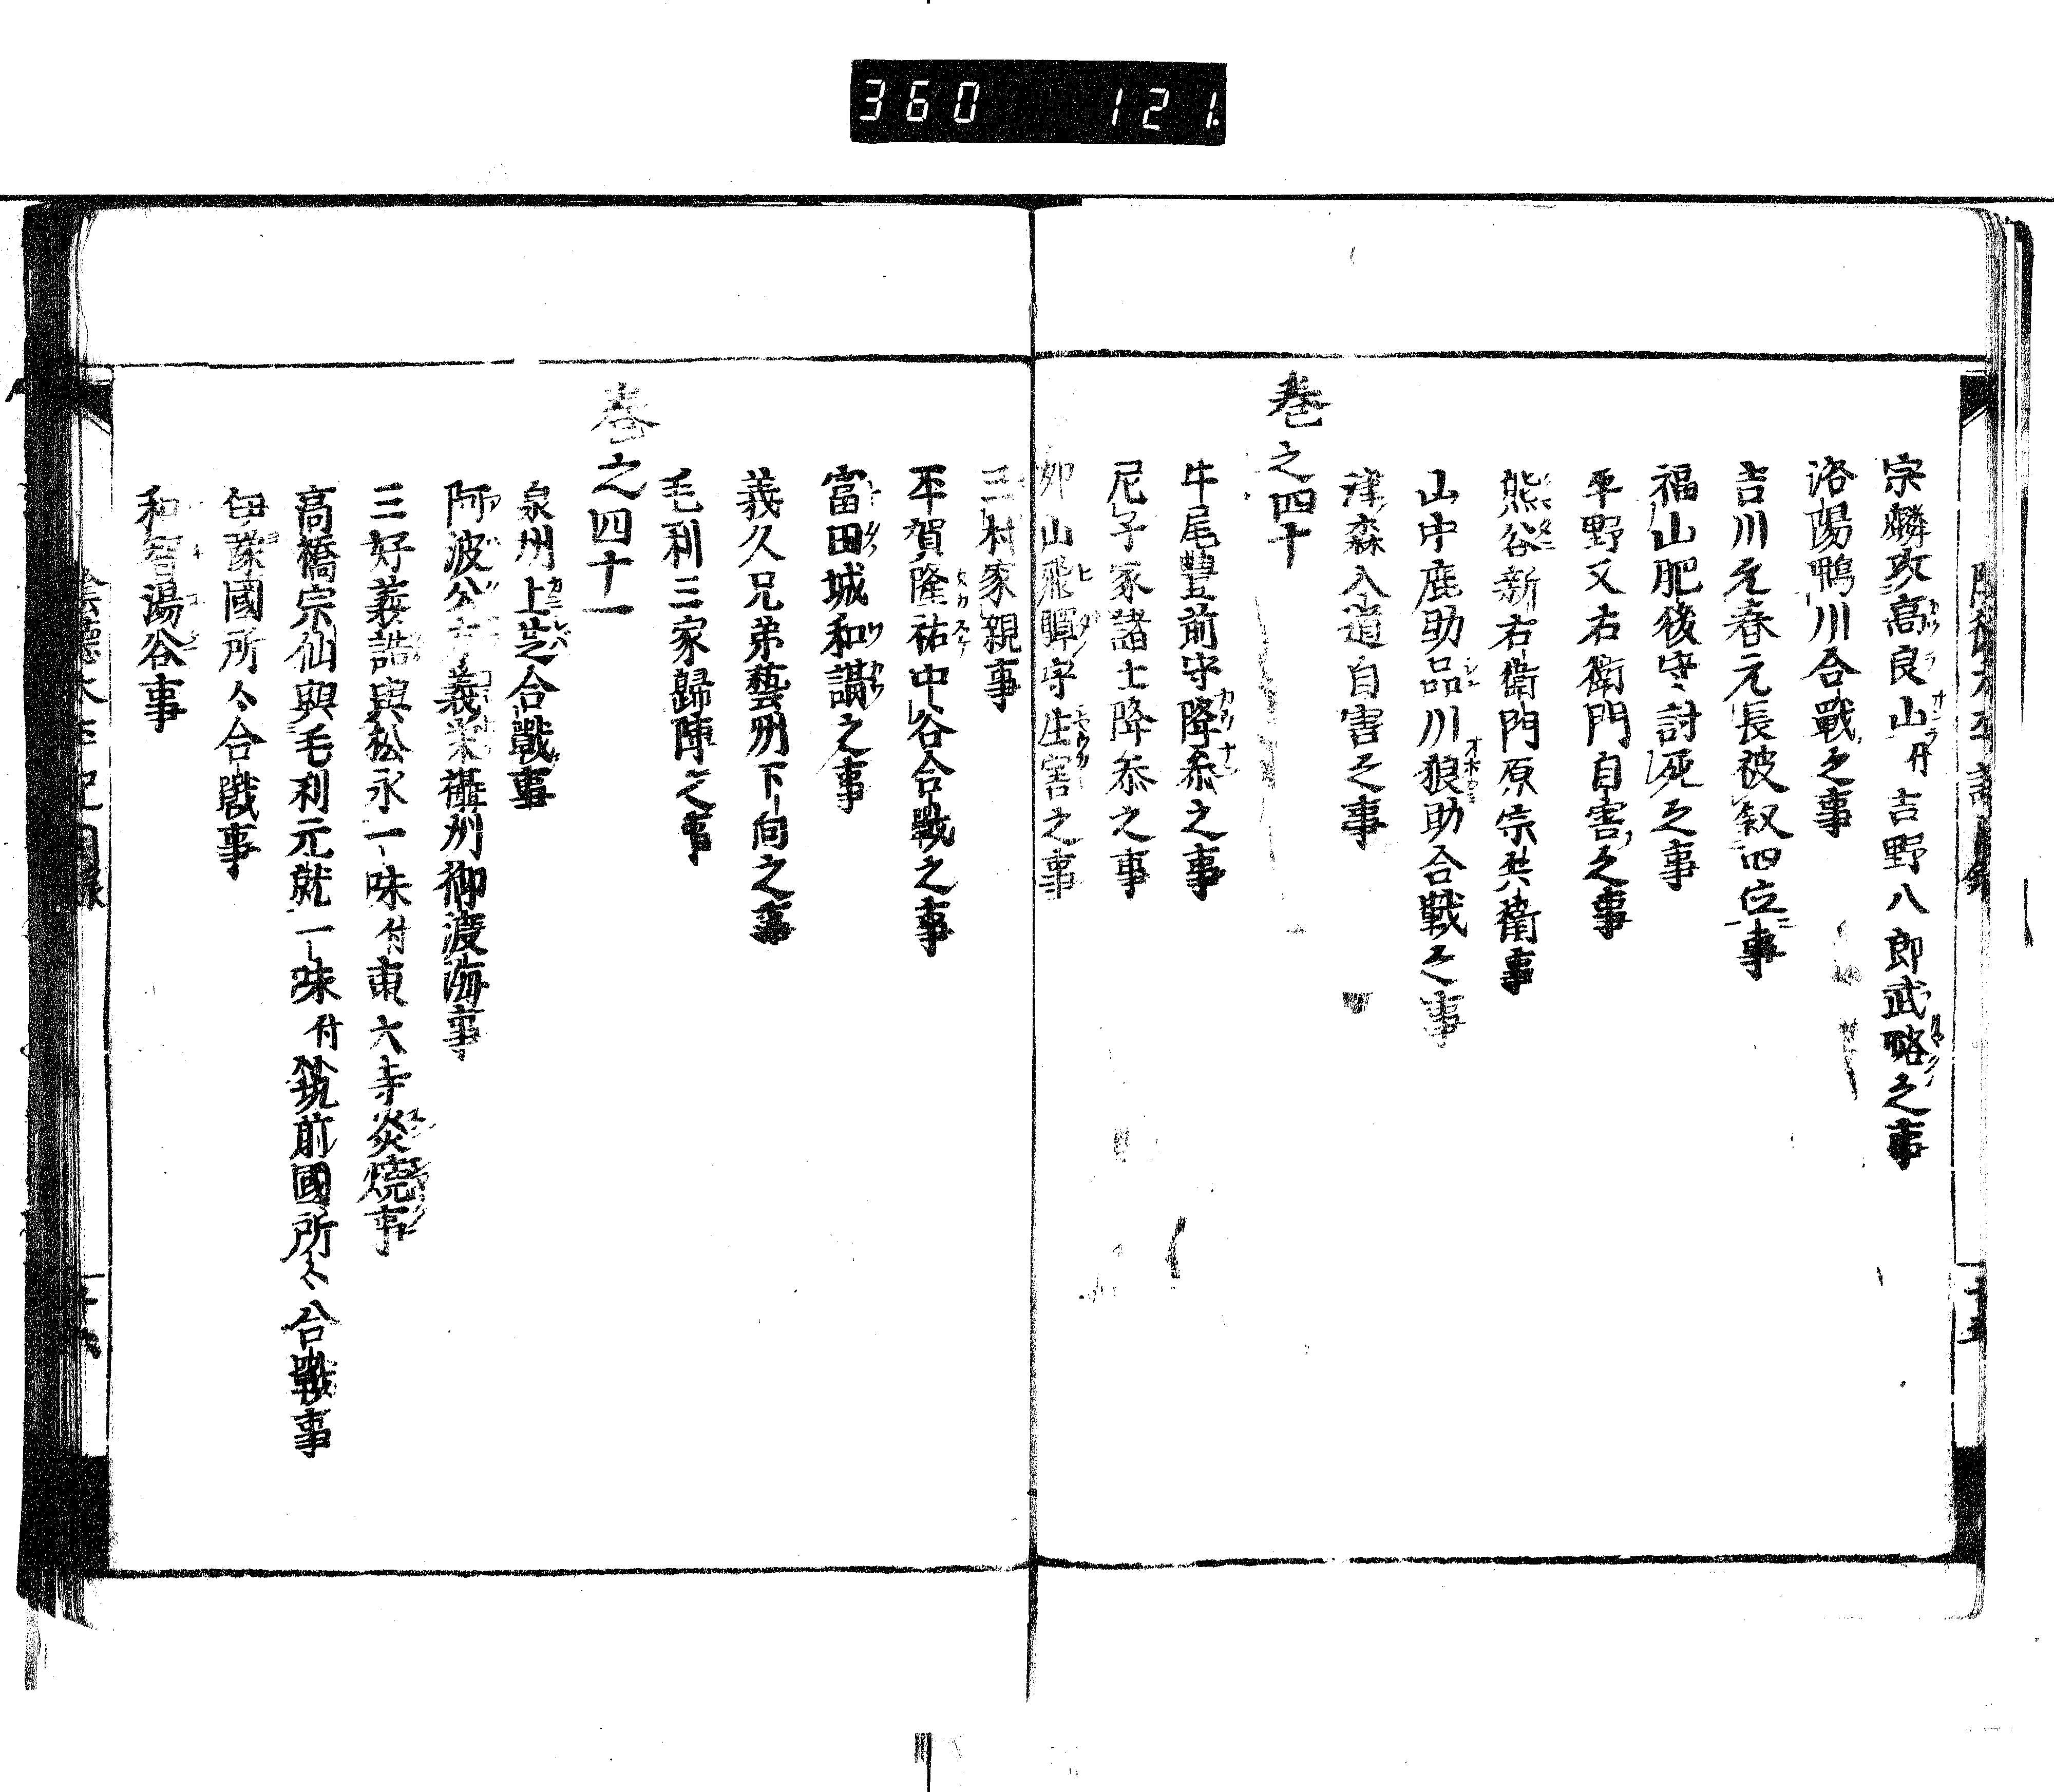 360 121
宗麟攻高良山付吉野八郎武略之事
洛陽鴨川合戰之事
吉川元春元長被叙四位事
福山肥後守討死之事
平野又右衛門自害之事
熊谷新右衛門原宗兵衛事
山中鹿助品川狼助合戰之事
津森入道自害之事
巻之四十
牛尾豊前守降参之事
尼子家諸士降参之事
卯山飛騨守生害之事
三村家親事
平賀隆祐中谷合戰之事
富田城和講之事
義久兄弟藝州下向之事
毛利三家歸陣之事
巻之四十一
泉州上芝合戰事
阿波公方義栄攝州御渡海事
三好義誥與松永一味付東大寺炎燒事
高橋宗仙與毛利元就一味付筑前國所々合戰事
伊豫國所々合戰事
和智湯谷事
陰德太平記目録